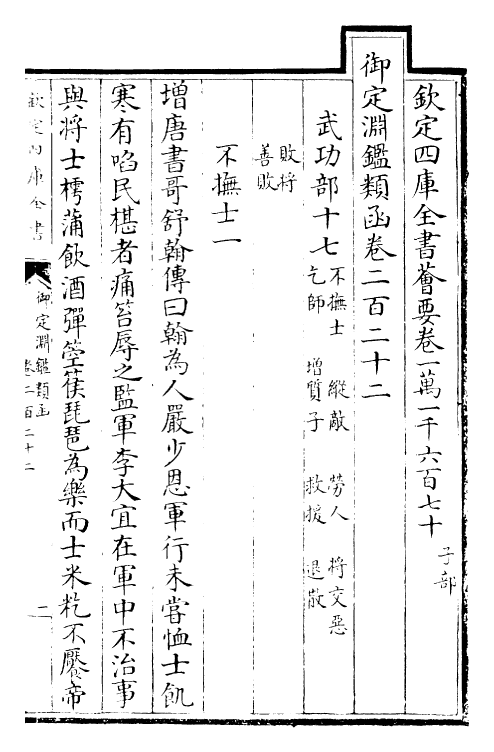 欽定四庫全書薈要卷一萬一千六百七十 子部
御定淵鑑類函卷二百二十二
武功部十七 不撫士 縱敵 勞人 將交惡
乞師 增質子 救援 退散
敗將
善敗
不撫士一
增唐書哥舒翰傳曰翰為人嚴少恩軍行未嘗恤士飢
寒有啗民椹者痛笞辱之監軍李大宜在軍中不治事
與將士樗蒲飲酒彈箜篌琵琶為樂而士米籺不饜帝
欽定四庫全書
御定淵鑑類函
卷二百二十二
一